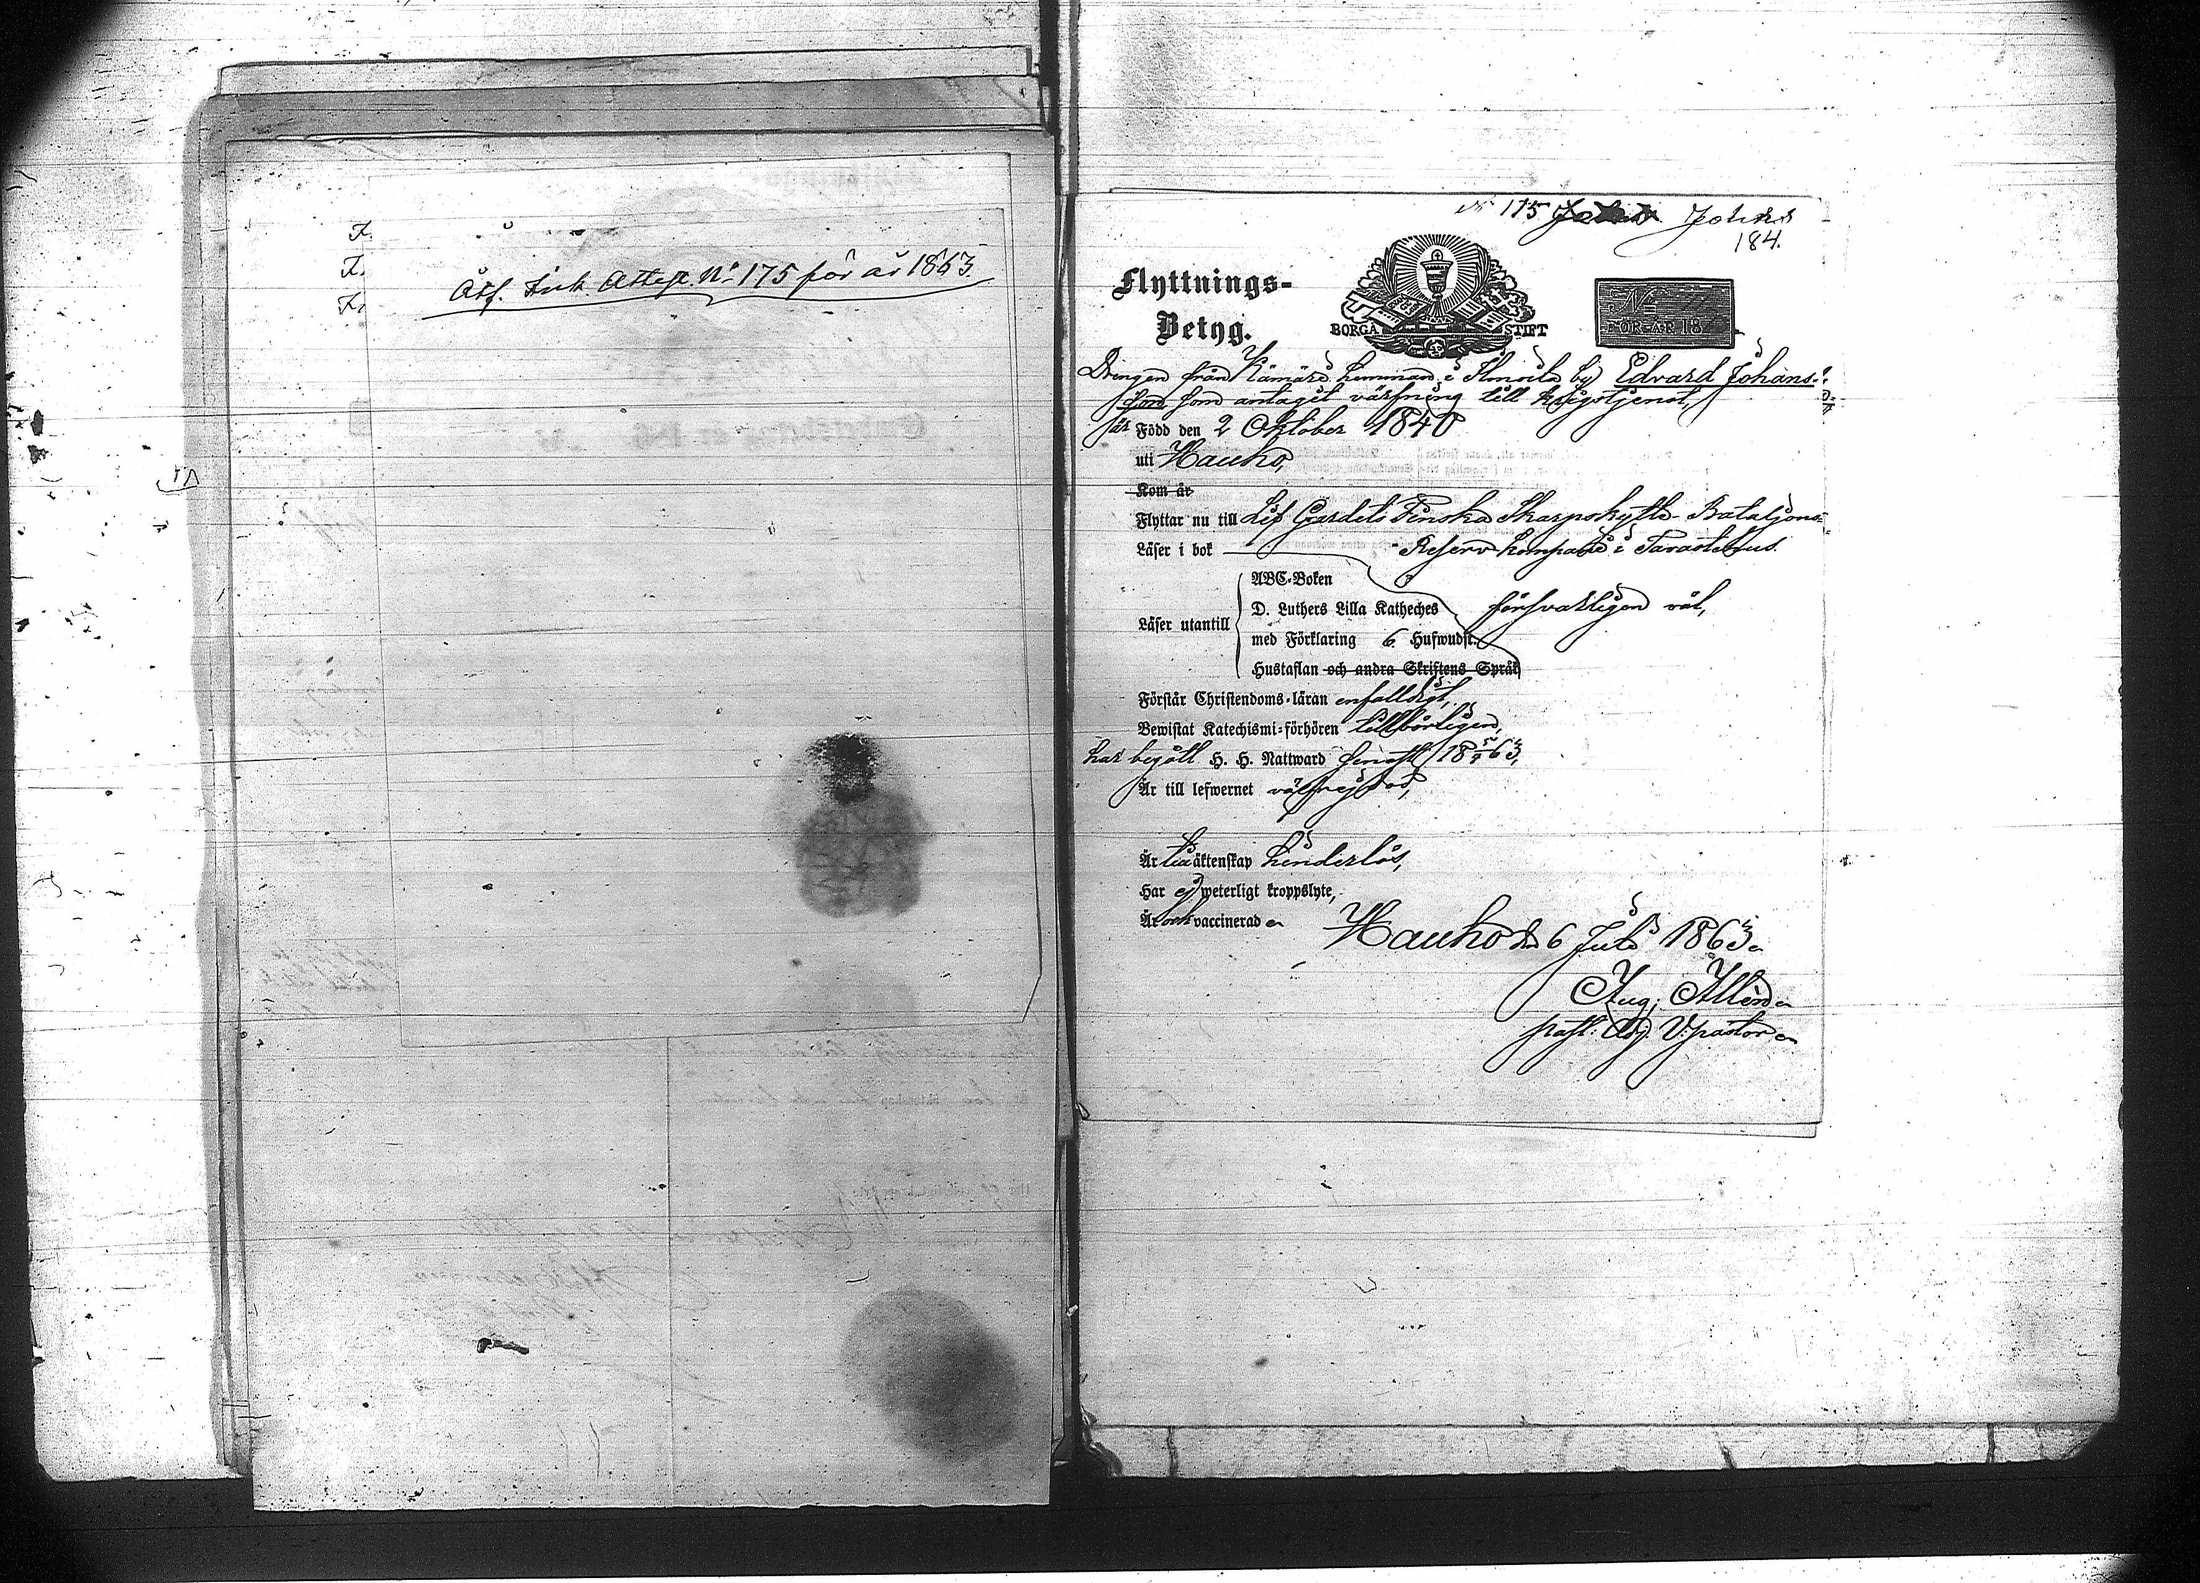 F.
F.
F.
Åtf. Fick Attest. No 175 för år 1863.
No 175 Johans
184.
Flyttnings-
Betyg.
BORGÅ STIFT
No
FÖR ÅR 18
Drengen från hemman i by Edvard Johans-
son som antagit värfning till krigstjenst,
är Född den 2 Oktober 1840
uti Hauho,
Kom år
Flyttar nu till Lif Gardets Finska Skarpskytte-Bataljons-
Reserv-kompani i Tavastehus.
Läser i bok
ABC-Boken
D. Luthers Lilla Katheches
försvarligen väl,
Läser utantill
med Förklaring 6 Hufwudst.
Hustaflan och andra Skriftens Språk
Förstår Christendoms-läran enfalldigt,
Bewistat Katechismi-förhören tillbörligen,
har begått H. H. Nattward senast 18 5/4 63,
Är till lefwernet välfrejdad,
Är till äktenskap hinderlös,
Har ej weterligt kroppslyte,
Är och vaccinerad
Hauho den 6 Juli 1863
Aug.
past. Adj. V.pastor